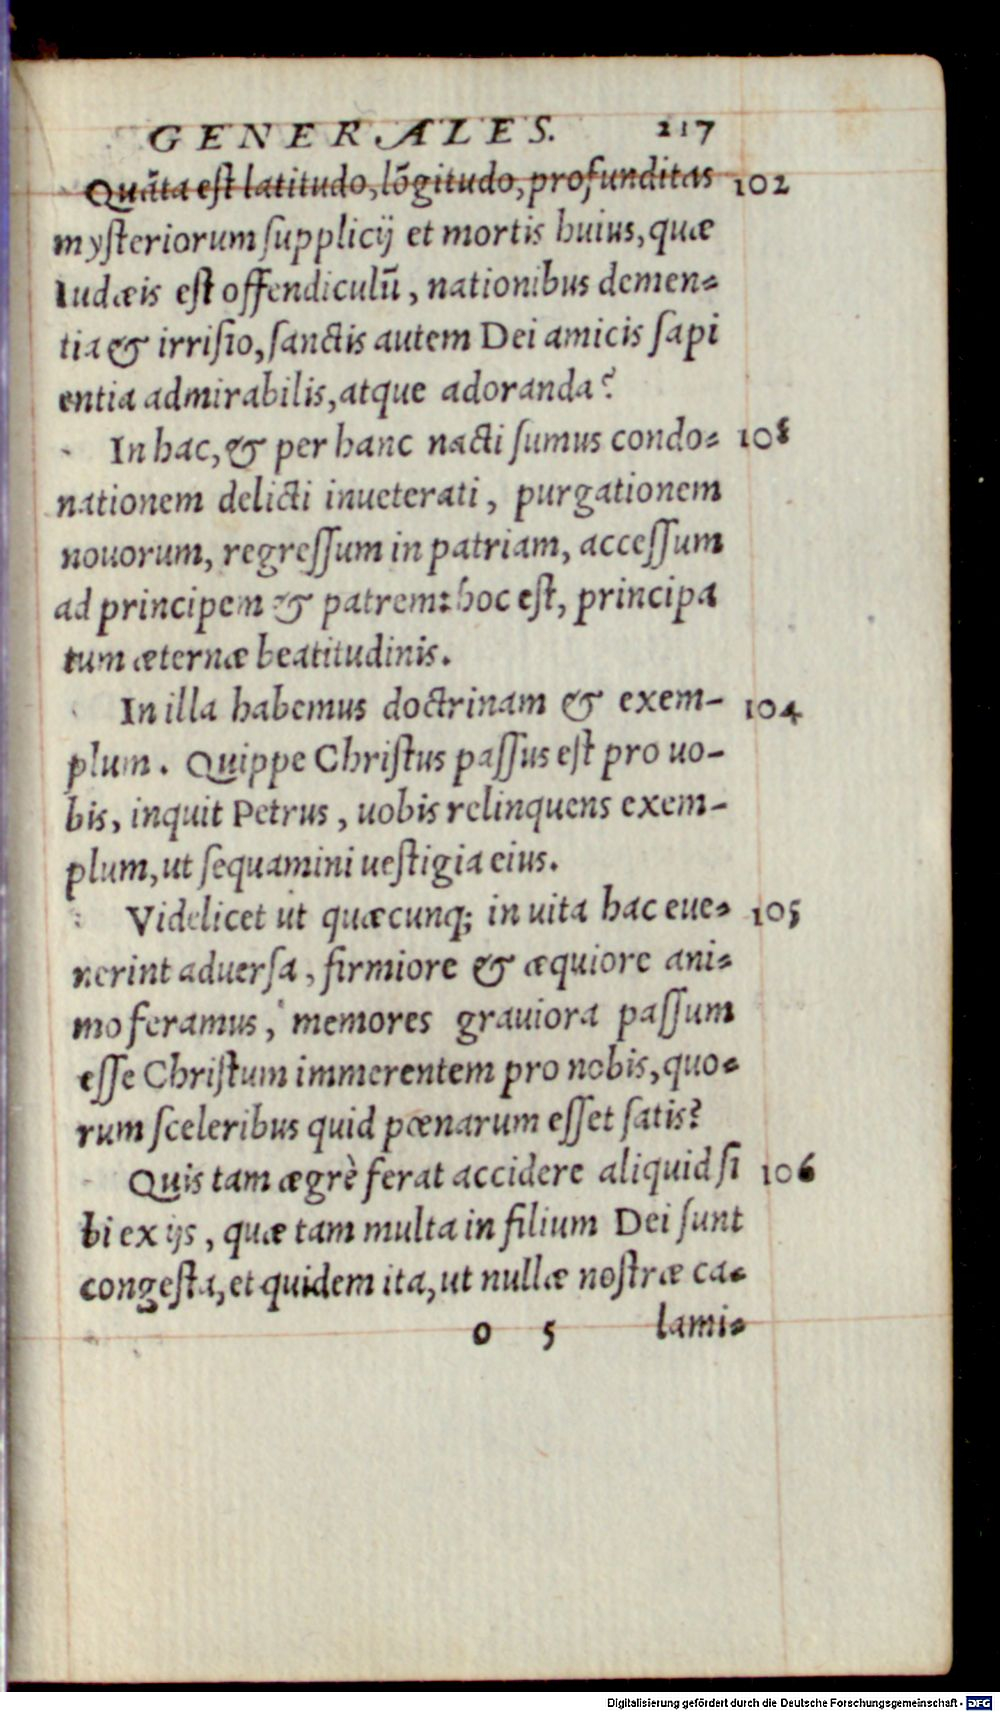 GENERALES. 217
Quãta est latitudo, lõgitudo, profunditas 102
mysteriorum supplicij et mortis huius, quæ
Iudæis est offendiculũ, nationibus demen-
tia & irrisio, sanctis autem Dei amicis sapi
entia admirabilis, atque adoranda?
In hac, & per hanc nacti sumus condo- 108
nationem delicti inueterati, purgationem
nouorum, regressum in patriam, accessum
ad principem & patrem: hoc est, principa
tum æternæ beatitudinis.
In illa habemus doctrinam & exem- 104
plum. Quippe Christus passus est pro uo-
bis, inquit Petrus, uobis relinquens exem-
plum, ut sequamini uestigia eius.
Videlicet ut quæcunq; in uita hac eue- 105
nerint aduersa, firmiore & æquiore ani-
mo feramus, memores grauiora passum
esse Christum immerentem pro nobis, quo-
rum sceleribus quid pœnarum esset satis?
Quis tam ægrè ferat accidere aliquid si 106
bi ex ijs, quæ tam multa in filium Dei sunt
congesta, et quidem ita, ut nullæ nostræ ca-
o 5 lami-
Digitalisierung gefördert durch die Deutsche Forschungsgemeinschaft - DFG